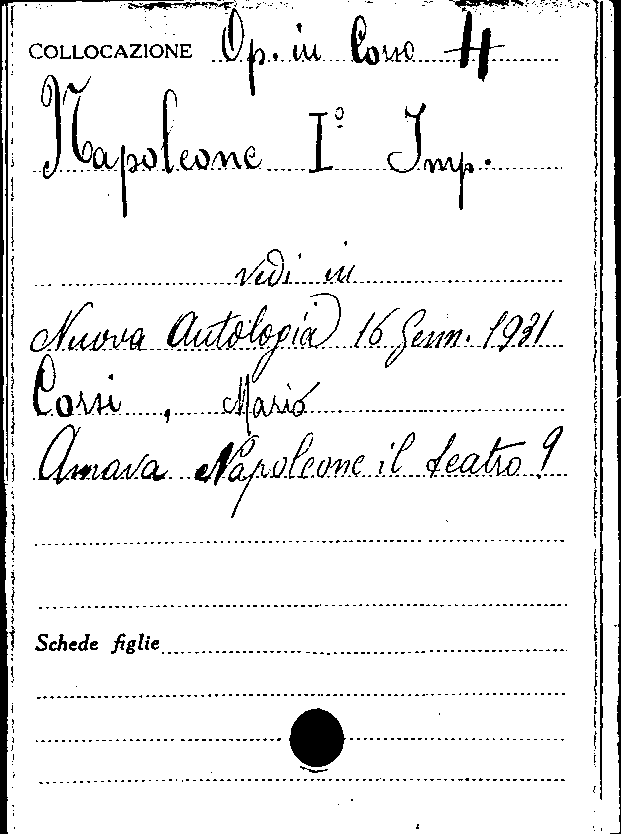 COLLOCAZIONE Op. in Corso 4
Napoleone I° Imp.
vedi in
Nuova Antologia 16 Genn. 1931
Corsi, Mario
Amava Napoleone il teatro?
Schede figlie